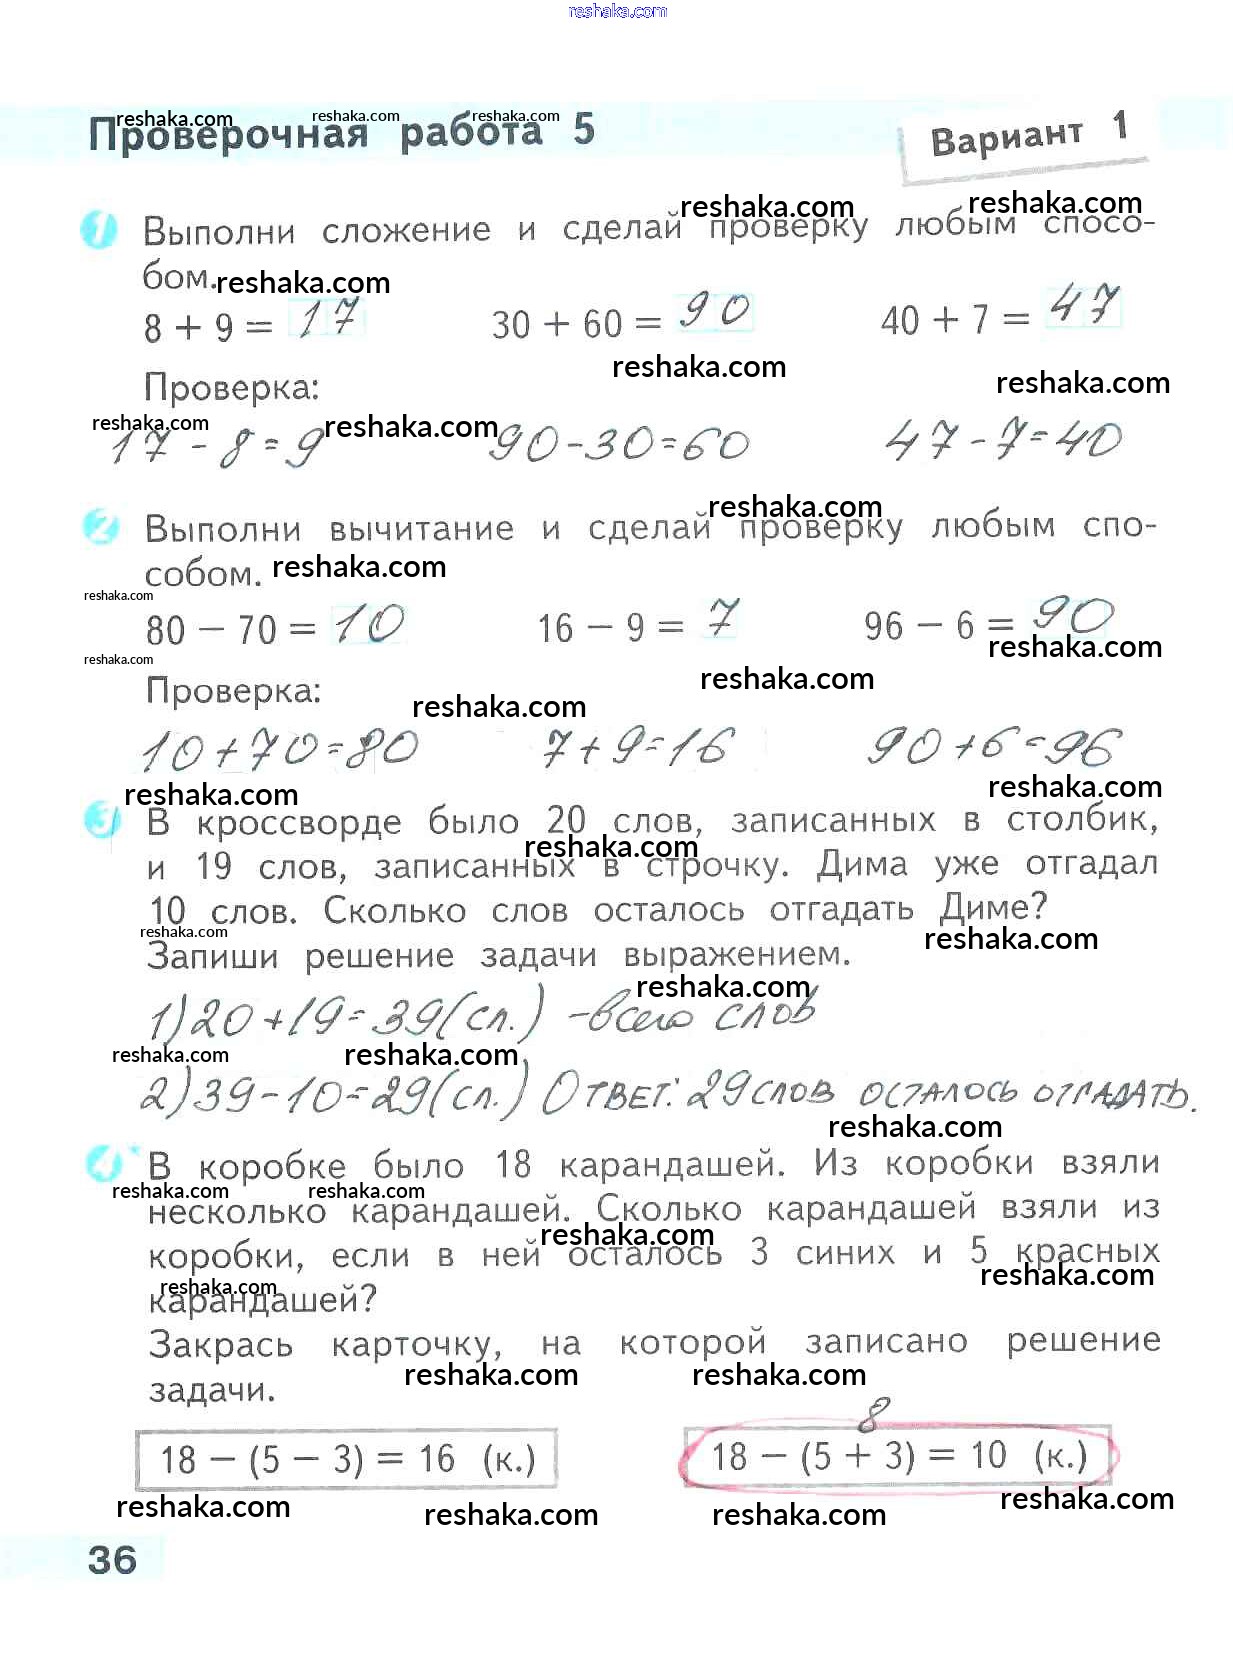 reshaka.com
reshaka.com reshaka.com reshaka.com
Проверочная работа 5
Вариант 1
reshaka.com reshaka.com
1 Выполни сложение и сделай проверку любым спосо-
бом. reshaka.com
8 + 9 = 17 30 + 60 = 90 40 + 7 = 47
reshaka.com reshaka.com
Проверка:
reshaka.com reshaka.com
17 - 8 = 9 90 - 30 = 60 47 - 7 = 40
reshaka.com
2 Выполни вычитание и сделай проверку любым спо-
собом. reshaka.com
reshaka.com
80 − 70 = 10 16 − 9 = 7 96 − 6 = 90
reshaka.com reshaka.com
reshaka.com
Проверка:
reshaka.com
10 + 70 = 80 7 + 9 = 16 90 + 6 = 96
reshaka.com reshaka.com
3 В кроссворде было 20 слов, записанных в столбик,
reshaka.com
и 19 слов, записанных в строчку. Дима уже отгадал
10 слов. Сколько слов осталось отгадать Диме?
reshaka.com reshaka.com
Запиши решение задачи выражением.
reshaka.com
1) 20 + 19 = 39 (сл.) - всего слов
reshaka.com reshaka.com
2) 39 - 10 = 29 (сл.) Ответ: 29 слов осталось отгадать.
reshaka.com
4 В коробке было 18 карандашей. Из коробки взяли
reshaka.com reshaka.com
несколько карандашей. Сколько карандашей взяли из
reshaka.com
коробки, если в ней осталось 3 синих и 5 красных
reshaka.com reshaka.com
карандашей?
Закрась карточку, на которой записано решение
reshaka.com reshaka.com
задачи.
8
18 − (5 − 3) = 16 (к.) 18 − (5 + 3) = 10 (к.)
reshaka.com reshaka.com reshaka.com reshaka.com
36